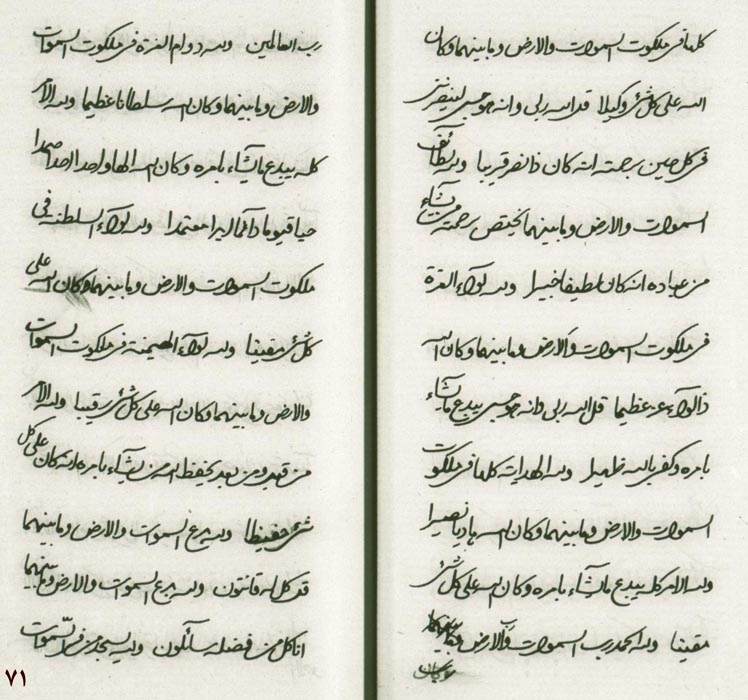 كلها فى ملكوت السموات والارض وما بينهما وكان
الله على كل شئ وكيلا قل الله ربى وانه هو حسبى لينصرنى
فى كل حين برحمته انه كان ذا نصر قريبا ولله لطائف
السموات والارض وما بينهما يختص برحمته من يشاء
من عباده انه كان لطيفا خبيرا ولله لواء العزة
فى ملكوت السموات والارض وما بينهما وكان الله
ذا لواء عز عظيما قل الله ربى وانه هو حسبى يبدع ما يشاء
بامره وكفى بالله ظهيرا ولله الهدايت كلها فى ملكوت
السموات والارض وما بينهما وكان الله هاديا نصيرا
ولله الامر كله يبدع ما يشاء بامره وكان الله على كل شئ
مقيتا ولله الحمد رب السموات ورب الارض وما بينهما
رب العالمين ولله دوام العزة فى ملكوت السموات
والارض وما بينهما وكان الله سلطانا عظيما ولله الامر
كله يبدع ما يشاء بامره وكان الله الها واحدا احدا صمدا
حيا قيوما دائما ابدا معتمدا ولله لواء السلطنه فى
ملكوت السموات والارض وما بينهما وكان الله على
كل شئ مقيتا ولله لواء الهيمنة فى ملكوت السموات
والارض وما بينهما وكان الله على كل شئ رقيبا ولله الامر
من قبل ومن بعد يحفظ الله من يشاء بامره انه كان على كل
شئ حفيظا ولله بدع السموات والارض وما بينهما
قل كل له قانتون ولله بدع السموات والارض وما بينهما
انا كل من فضله سائلون ولله يسجد من فى السموات
٧١